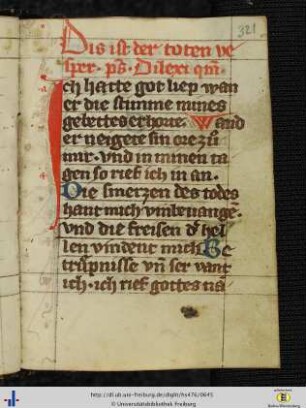 321
Dis ist der toten ve
sper · ps · Dilexi qm̄ ·
Ich hatte got liep wan
er die stimme mines
gebettes erhorte · Wand
er neigete sin ore zů
mir · Vnd in minen ta
gen so rief ich in an ·
Die smerzen des todes
hant mich vmbeuangē ·
vnd die freisen d̕ hel
len vundent mich Be
trůpnisse vn̄ ser vant
ich · ich rief gottes nā
http://dl.ub.uni-freiburg.de/diglit/hs476/0645
© Universitätsbibliothek Freiburg